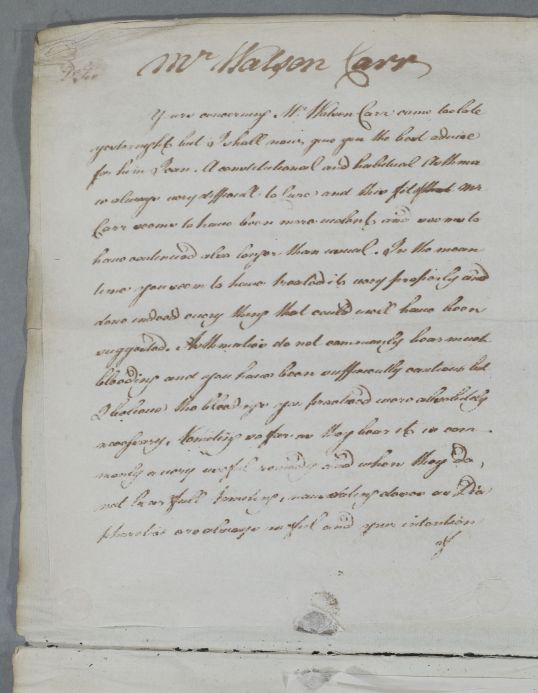 Mr Watson Carr
Yours concerning Mr Watson Carr came too late
yesternight but I shall now give you the best advice
for him I can. A constitutional and habitual Asthma
is always very difficult to Cure and this fit of Mr
Carr seems to have been more violent and seems to
have continued also longer than usual. In the mean
time you seem to have treated it very properly and
done indeed every thing that could well have been
suggested. Asthmatics do not commonly bear much
bleeding and you have been sufficiently cautious but
I believe the bleedings you practised were absolutely
necessary. Vomiting so far as they bear it is com
monly a very useful remedy and when they do
not bear full Vomiting, nauseating doses as Dia
phoretics are always useful and your intention
of